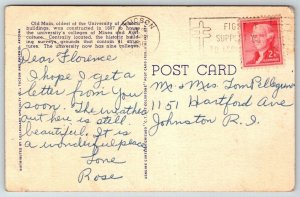 Old Main, oldest of the University of Arizona
buildings, was constructed in 1887 to house
the university's colleges of Mines and Agri-
culture. Centrally located, the historic build-
ing surveys grounds that contain 41 struc-
tures. The university now has nine colleges.
Dear Florence
I hope I get a
letter from you
soon. The weather
out here is still
beautiful. It is
a wonderful place
Love
Rose
POST CARD
Mr & Mrs Tom Pellegrino
1151 Hartford Ave
Johnston R.I.